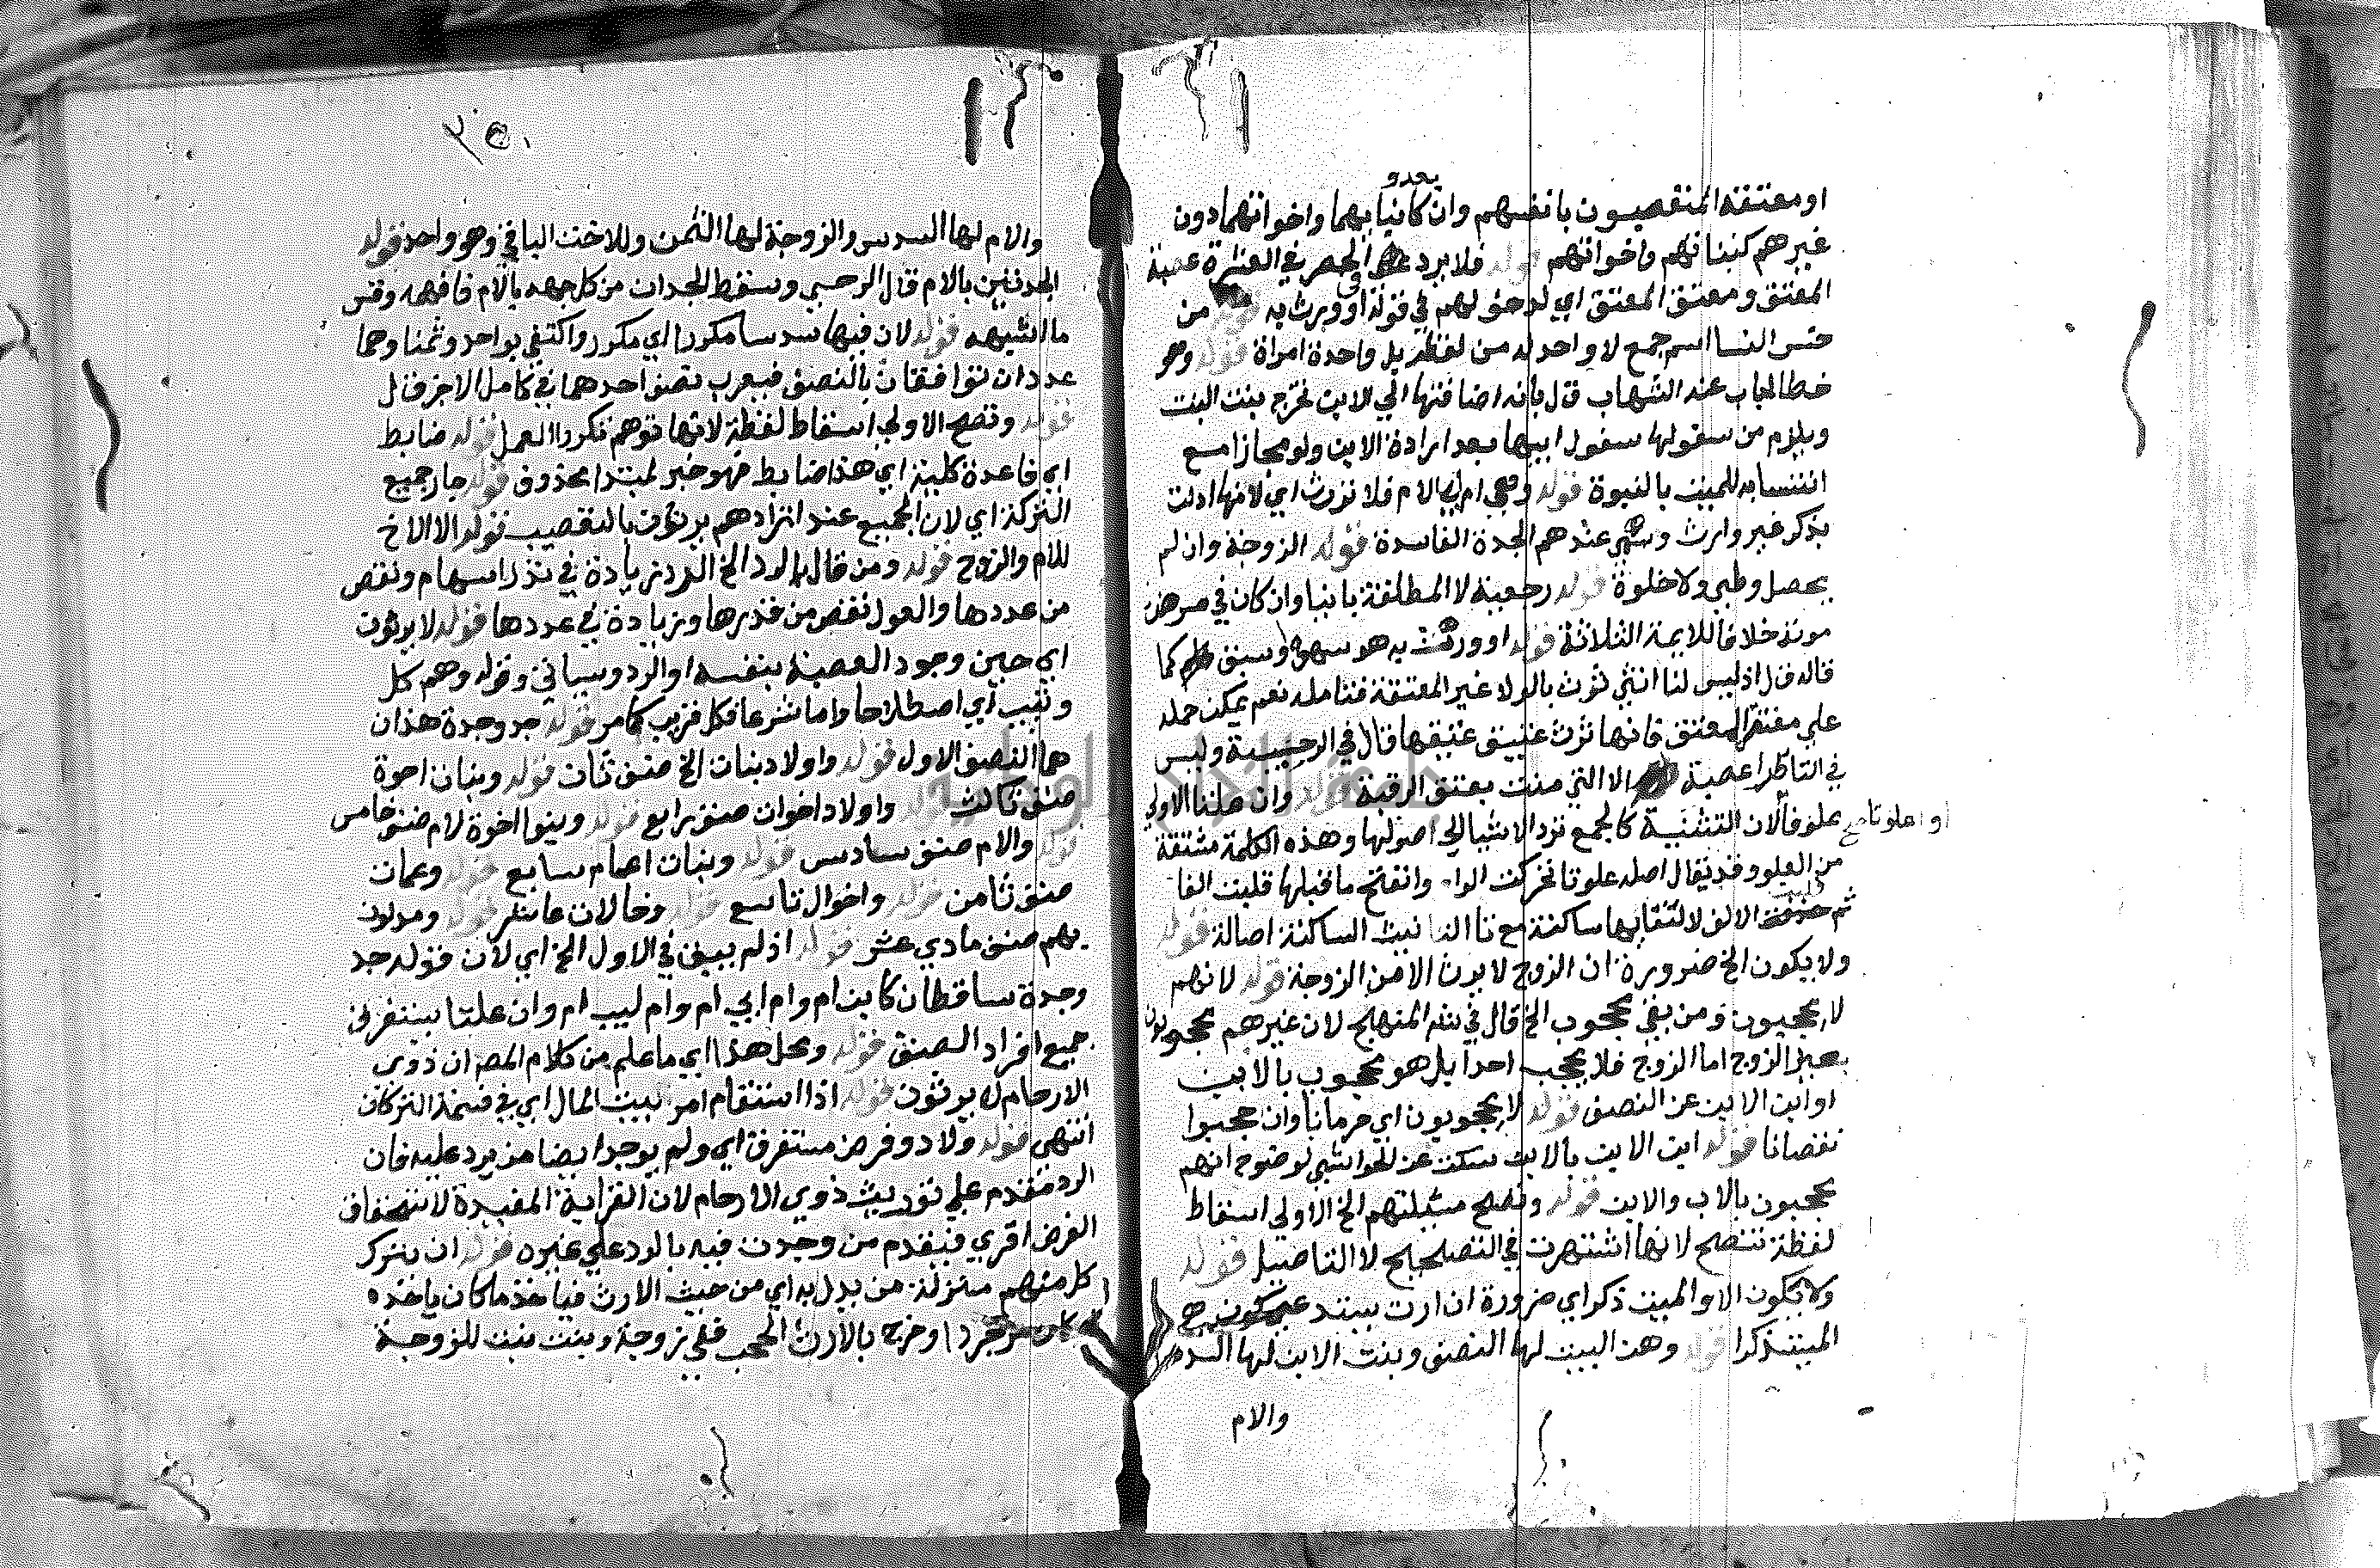 يعدو
او معتقه المتعصبون بانفسهم وان كانيا بهما واخواتهما دون
غيرهم كبناتهم واخواتهم قوله فلا يرد الحصر في العشرة عصبة
المعتق ومعتق المعتق اي لدخولهم في قوله او ورث به قوله من
حتس النسا اسم جمع لا واحد له من لفظه بل واحدة امراة قوله وهو
خطا لجاب عند الشهاب قال بانه اضافتها الي الابن تخرج بنت البنت
ويلزم من سفولها سفول ابيها بعد ارادة الابن ولو مجازا مع
انتسابه للميت بالبنوة قوله وهي ام ابي الام فلا نورث اي لانها ادلت
بذكر غير وارث وسمي عندهم الجدة الفاسدة قوله الزوجة وان لم
يحصل وطي ولا خلوة قوله رجعية لا المطلقة باينا وان كان في مرض
موته خلافا للايمة الثلاثة قوله او ورثت به هو سهو وسبق كما
قاله قال اذ ليس لنا انثي ترث بالولا غير المعتقة فتامله نعم يمكن حمله
علي معتقة المعتق فانها ترث عتيق عتيقها قال في الرحبية وليس
في النسا طرا عصبة الا التي منت بعتق الرقبة قوله وان علتا الاولي
او اعلوتا صح
علوفا لان التثنية كالجمع ترد الاشيا الي اصولها وهذه الكلمة مشتقة
من العلو وقد يقال اصله علوتا تحركت الواو وانفتح ما قبلها قلبت الفا
ثم حذفت الالف لالتقايها ساكنة مع تا التانيث الساكنة اصالة قوله
ولا يكون الخ ضرورة ان الزوج لا يورث الا من الزوجة قوله لانهم
لا يحجبون ومن بقي محجوب الخ قال في المنهج لان غيرهم محجوبون
بغير الزوج اما الزوج فلا يحجب احدا بل هو محجوب بالابن
او ابن الابن عن النصف قوله لا يحجبون اي حرمانا وان حجبوا
نقصانا قوله ابن الابن بالابن سكت عن الحواشي لوضوح انهم
يحجبون بالاب والابن قوله وتصح مسئلتهم الخ الاولي اسقاط
لفظة تتصح لانها اشتهرت في التصحيح لا التاصيل قوله
ولا يكون الا والميت ذكرا اي ضرورة ان ارث يستدعي كون صح
الميت ذكرا قوله وهن البنت لها النصف وبنت الابن لها السدس
والام
والام لها السدس والزوجة لها الثمن وللاخت الباقي وهو واحد قوله
الجدتين بالام قال الرحبي وتسقط الجدات من كل جهه بالام فافهمه وقس
ما اشبهه قوله لان فيها سدسا مكررا اي مكرر واكتفي بواحد وثمنا وهما
عددان توافقان بالنصف فيضرب نصف احدهما في كامل الاخر قال
قوله وتصح الاولي اسقاط لفظة لانها توهم تكرر العمل قوله ضابط
اي قاعدة كلية اي هذا ضابط فهو خبر لمبتدا محذوف قوله حاز جميع
التركة اي لان الجميع عند انفرادهم يرثون بالتعصيب قوله الا الاخ
للام والزوج قوله ومن قال بالرد الخ الرد زيادة في قدر السهام ونقص
من عددها والعول نقص من قدرها وزيادة في عددها قوله لا يرثون
اي حين وجود العصبة بنفسه او الرد وسياتي وقوله وهم كل
وقريب اي اصطلاحا واما شرعا فكل قريب كما مر قوله جد وجدة هذان
هما النصف الاول قوله واولاد بنات الخ صنف ثان قوله وبنات اخوة
صنف ثالث قوله واولاد اخوات صنف رابع قوله وبنوا اخوة لام صنف خامس
قوله والام صنف سادس قوله وبنات اعمام سابع قوله وعمات
صنف ثامن قوله واخوال تاسع قوله وخالات عاشر قوله ومدلون
بهم صنف حادي عشر قوله اذ لم يبق في الاول الخ اي لان قوله جد
وجدة ساقطان كاب ام وام ابي ام وام ليب ام وان علتا يستغرق
جميع افراد الصنف قوله ومحل هذا اي ما علم من كلام المصر ان ذوي
الارحام لا يرثون قوله اذا استقام امر بيت المال اي في قسمة التركات
انتهي قوله ولا ذو فرض مستغرق اي ولم يوجد ايضا من يرد عليه فان
الرد مقدم علي توريث ذوي الارحام لان القرابة المفيدة لاستحقاق
الفرض اقوي فيقدم من وجدت فيه بالرد علي غيره قوله ان يترك
كل منهم منزلة من يدلي به اي من حيث الارث فياخذ ما كان ياخذه
وخرج بالارث الحجب ففي زوجة وبنت بنت للزوجة